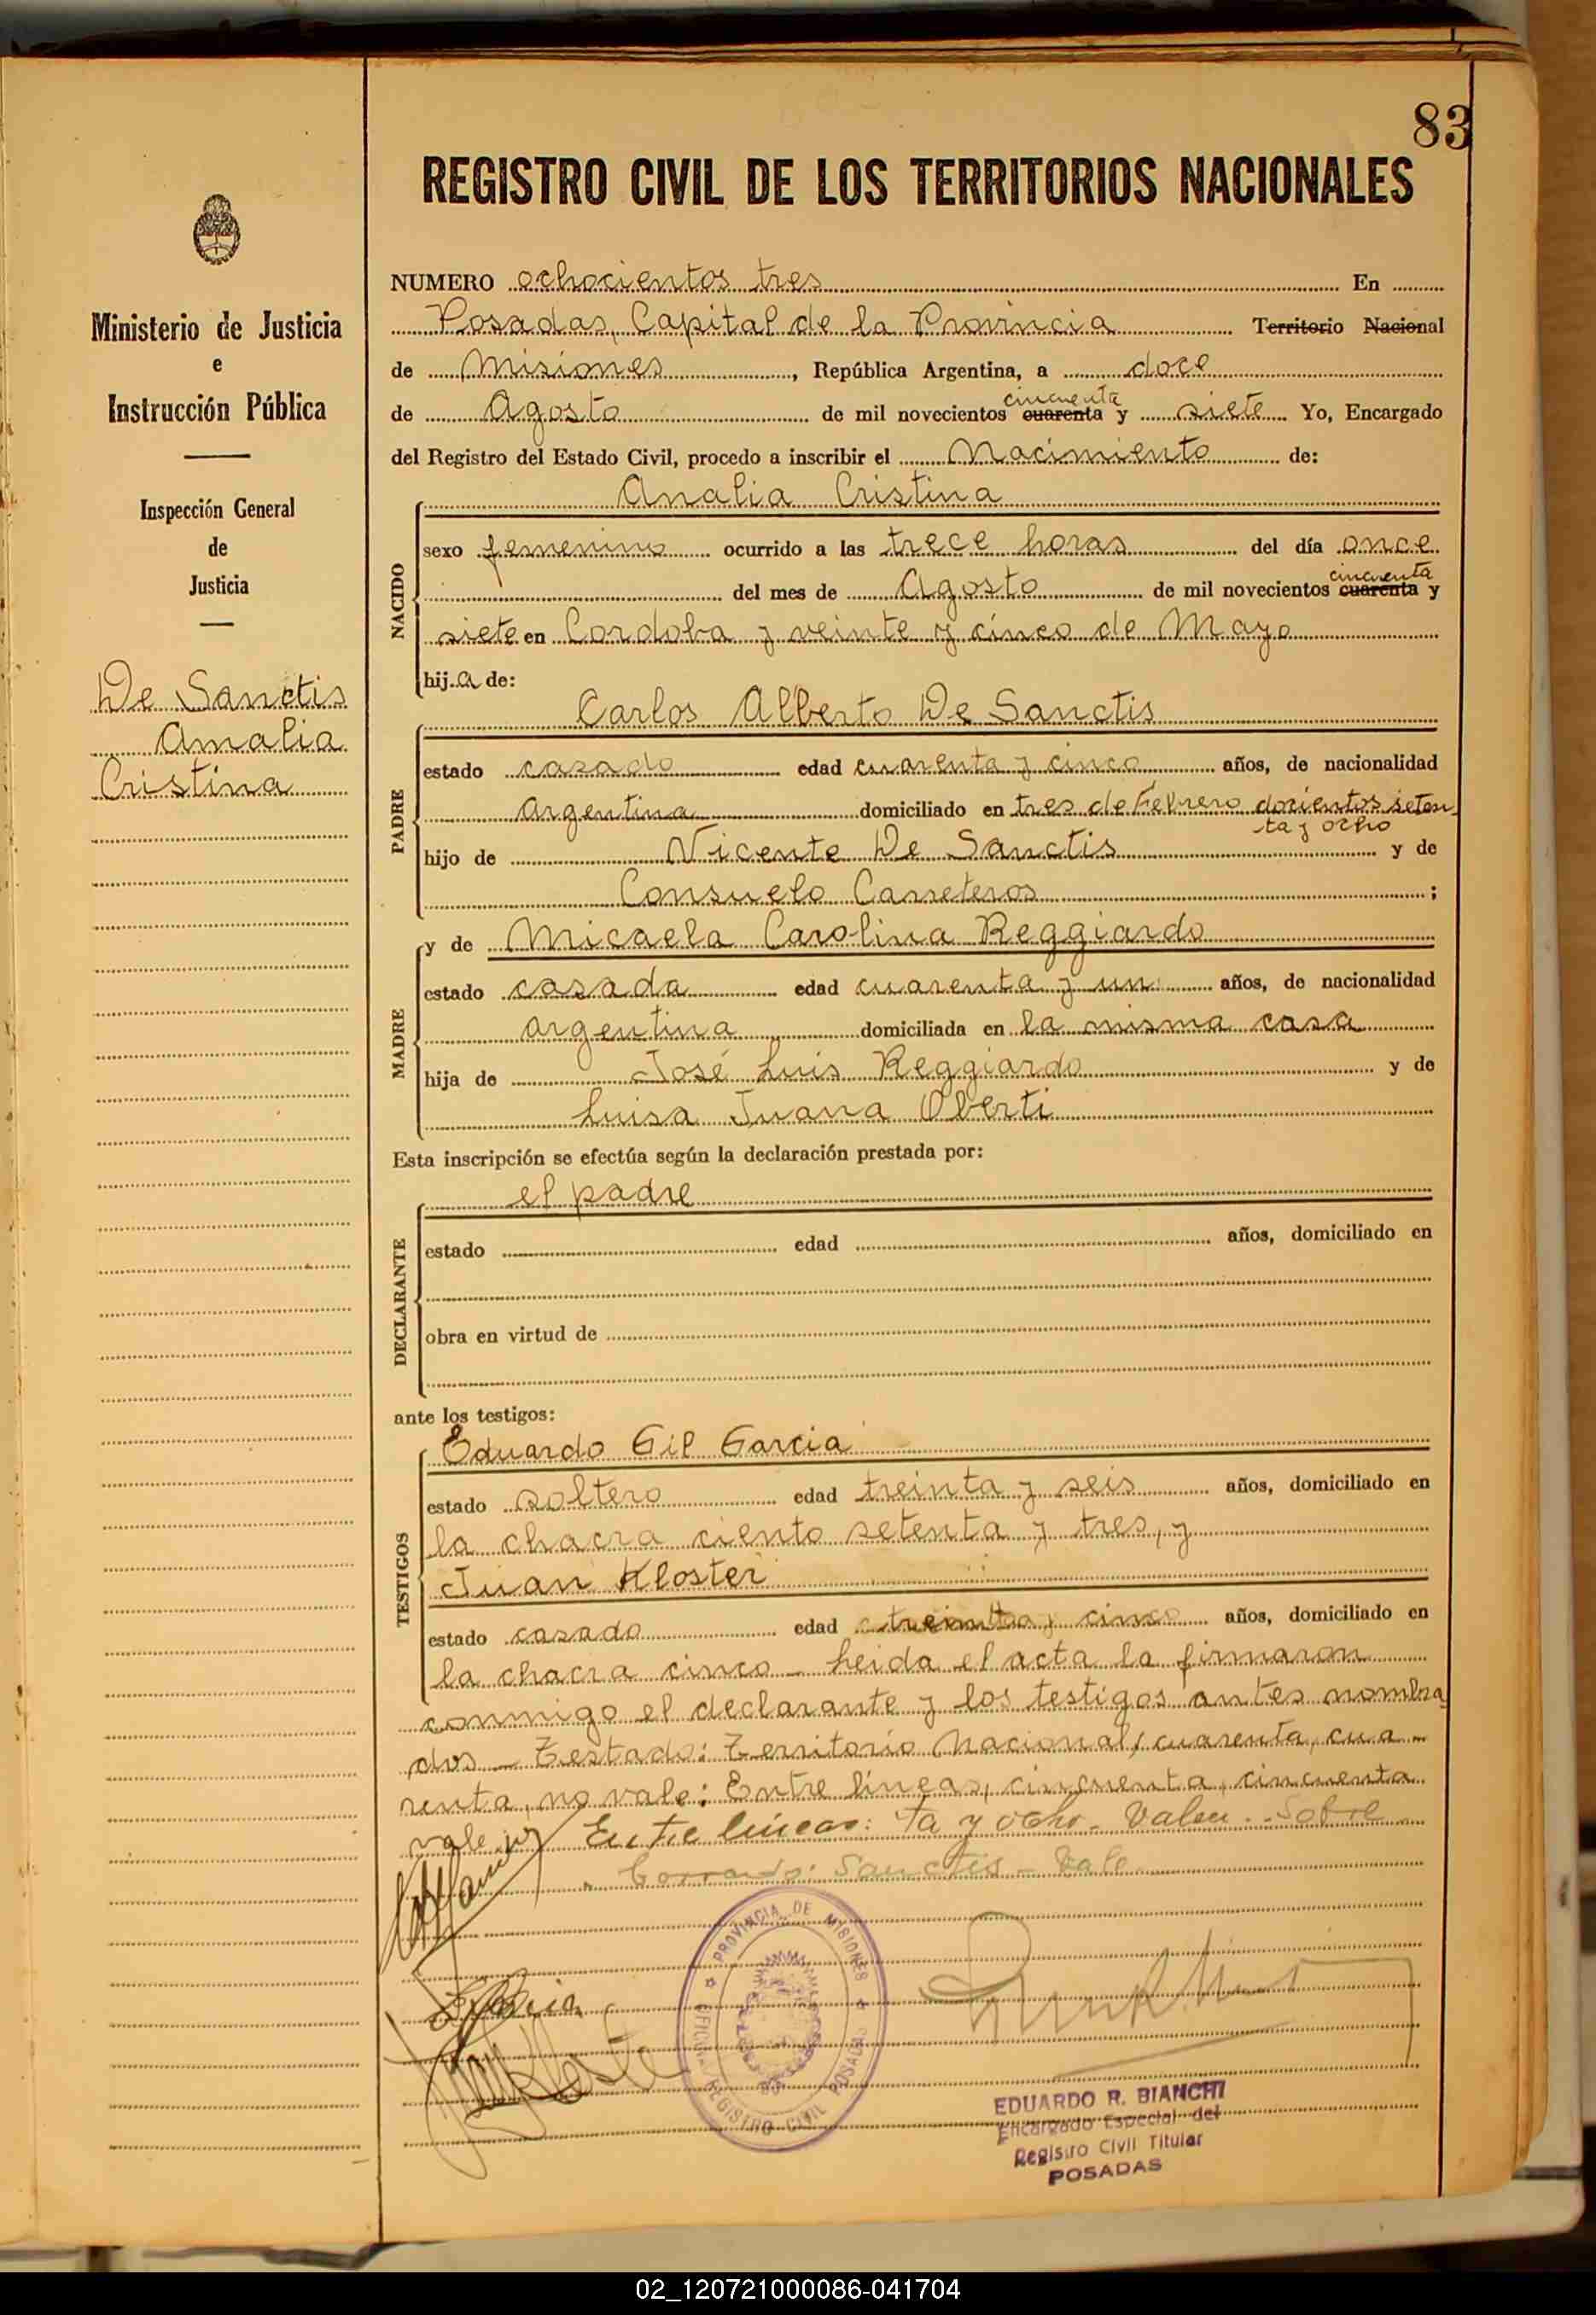 83
REGISTRO CIVIL DE LOS TERRITORIOS NACIONALES
Ministerio de Justicia
e
Instrucción Pública
Inspección General
de
Justicia
De Sanctis
Analia
Cristina
NUMERO ochocientos tres En
Posadas, Capital de la Provincia Territorio Nacional
de Misiones, República Argentina, a doce
cincuenta
de Agosto de mil novecientos cuarenta y siete Yo, Encargado
del Registro del Estado Civil, procedo a inscribir el Nacimiento de:
Analia Cristina
NACIDO
sexo femenino ocurrido a las trece horas del día once
cincuenta
del mes de Agosto de mil novecientos cuarenta y
siete en Cordoba y veinte y cinco de Mayo
hija de:
Carlos Alberto De Sanctis
PADRE
estado casado edad cuarenta y cinco años, de nacionalidad
argentina domiciliado en tres de Febrero docientos seten
ta y ocho
hijo de Vicente De Sanctis y de
Consuelo Carreteros;
MADRE
y de Micaela Carolina Reggiardo
estado casada edad cuarenta y un años, de nacionalidad
argentina domiciliada en la misma casa
hija de José Luis Reggiardo y de
Luisa Juana Oberti
Esta inscripción se efectúa según la declaración prestada por:
el padre
DECLARANTE
estado edad años, domiciliado en
obra en virtud de
ante los testigos:
TESTIGOS
Eduardo Gil Garcia
estado soltero edad treinta y seis años, domiciliado en
la chacra ciento setenta y tres, y
Juan Kloster
estado casado edad treinta y cinco años, domiciliado en
la chacra cinco - Leida el acta la firmaron
conmigo el declarante y los testigos antes nombra
dos - Testado: Territorio Nacional, cuarenta, cua-
renta, no vale: Entre líneas, cincuenta, cincuenta
vale Entre líneas: ta y ocho - Valen. - Sobre
borrado: Sanctis - Vale
PROVINCIA DE MISIONES
OFICINA REGISTRO CIVIL POSADAS
EDUARDO R. BIANCHI
Encargado Especial del
Registro Civil Titular
POSADAS
02_120721000086-041704